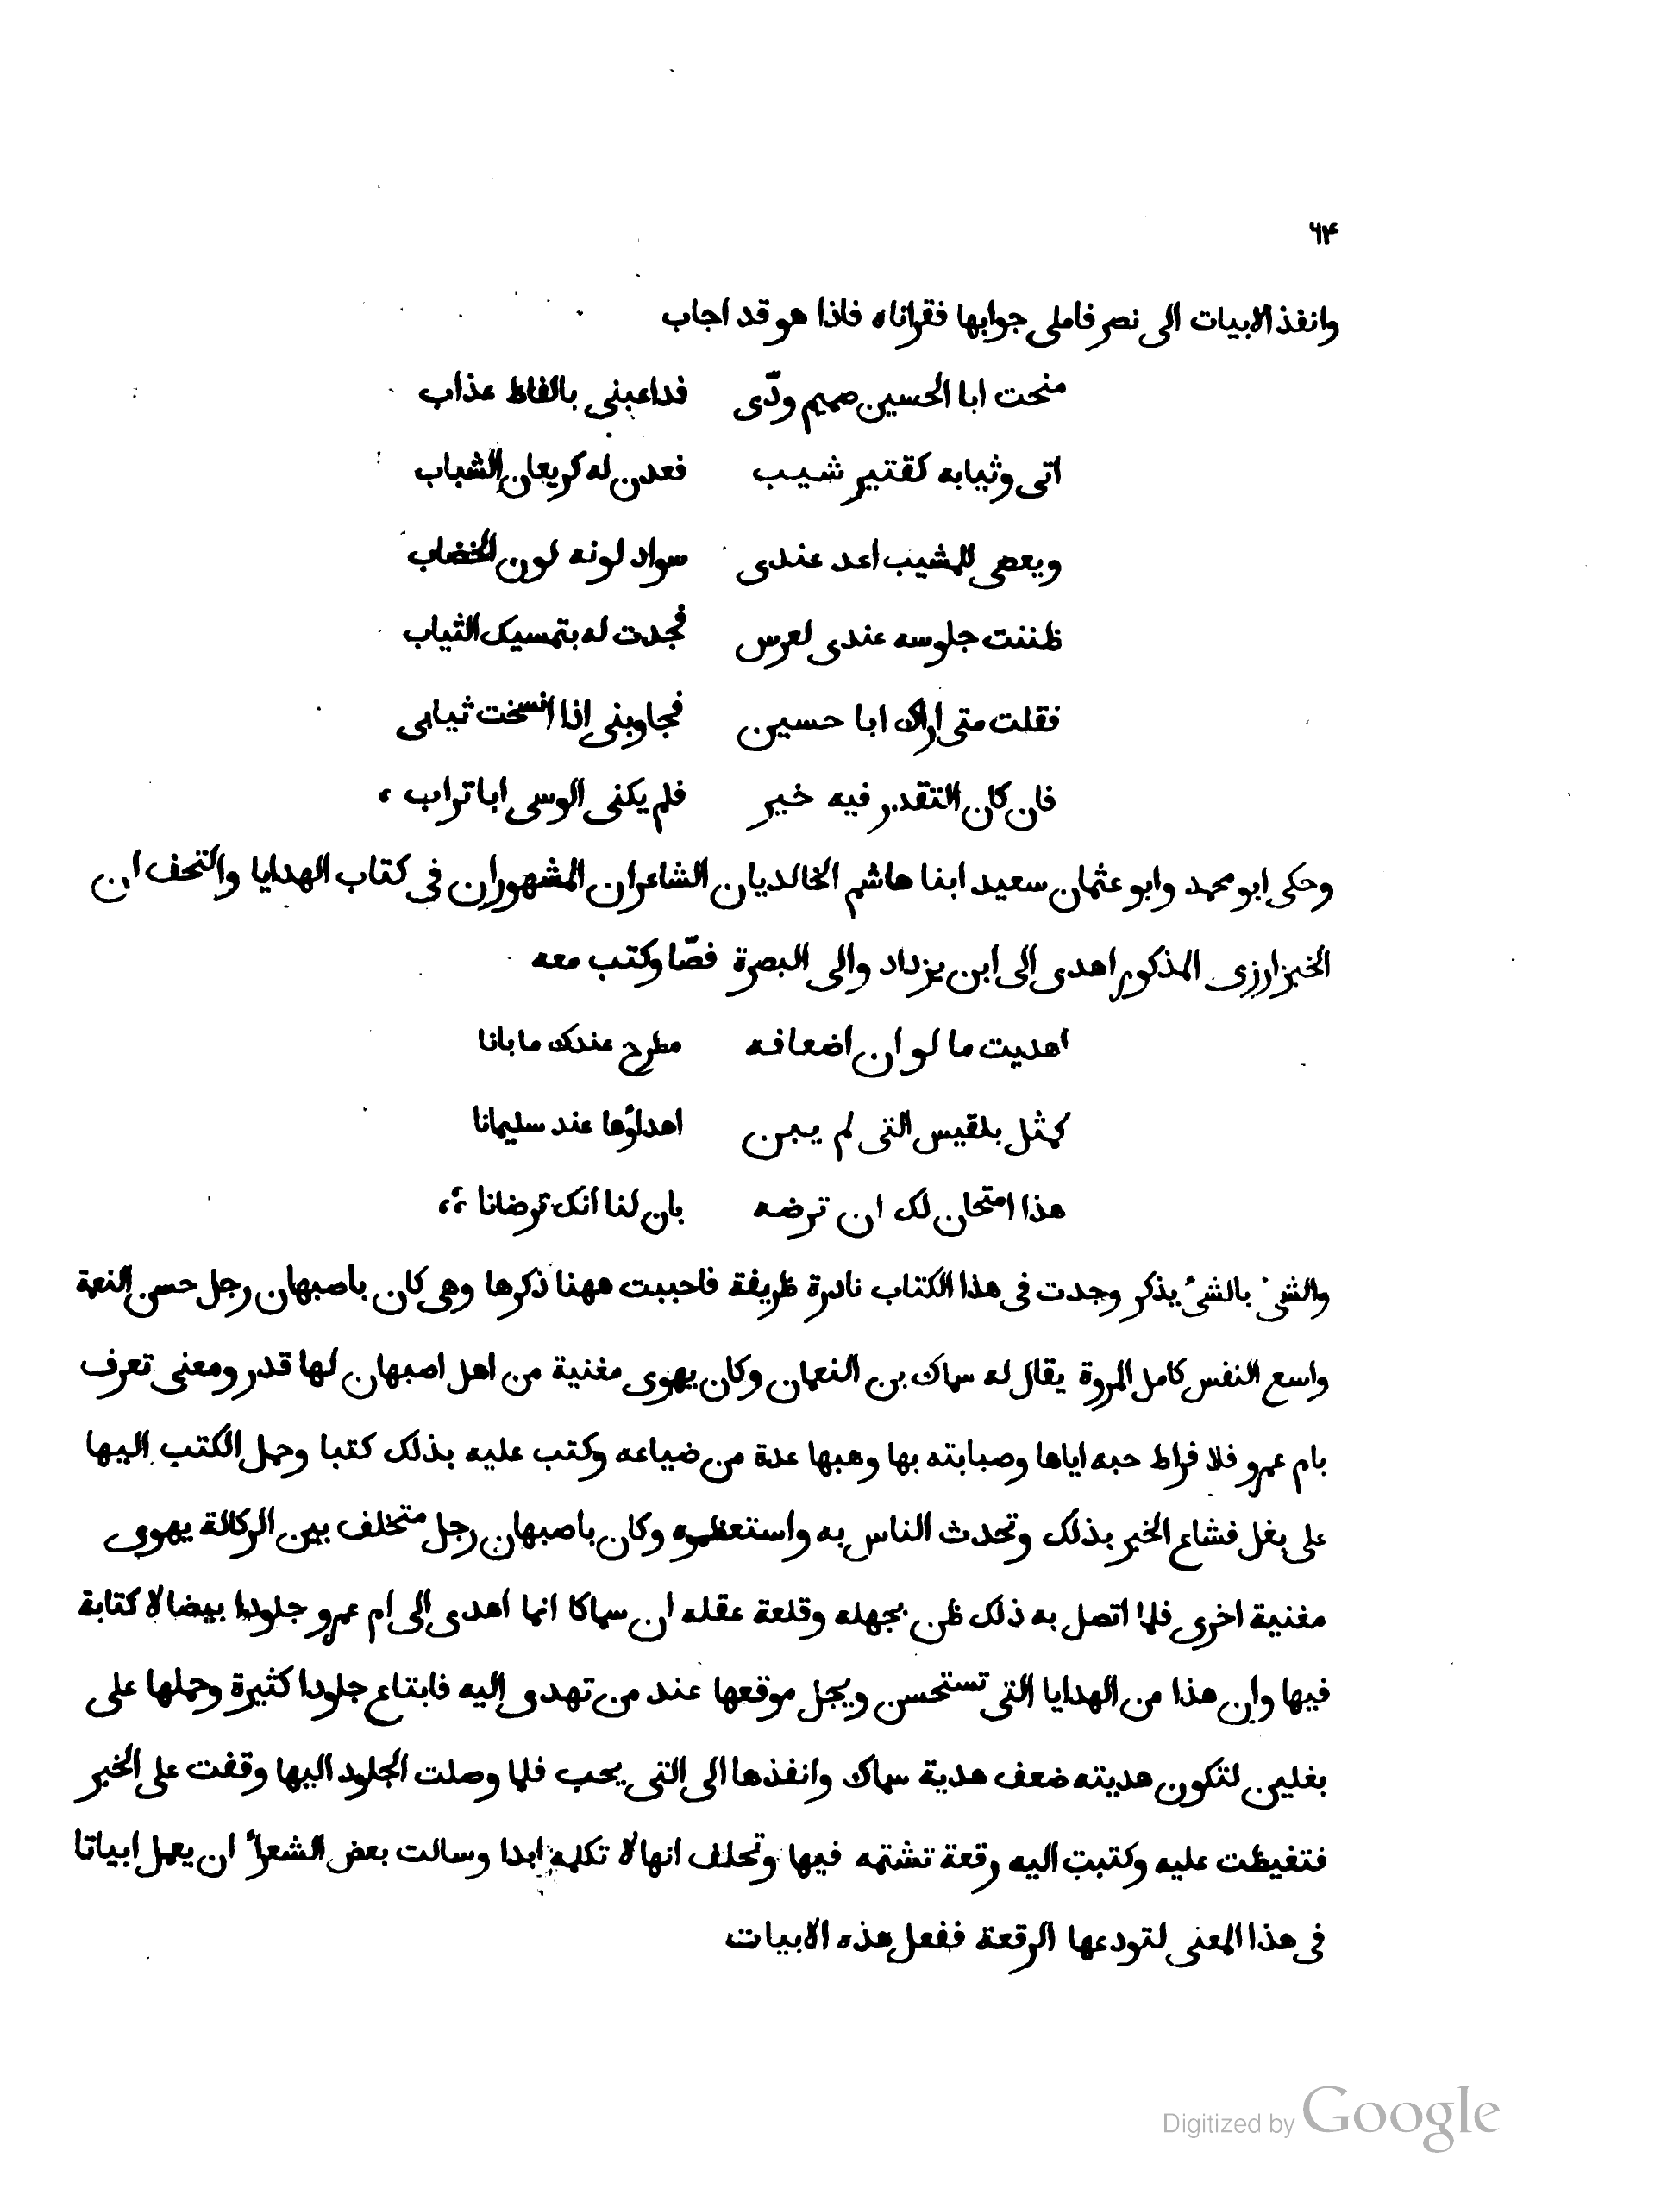 ٦٤
وانفذ الابيات الى نصر فاملى جوابها فقراناه فاذا هو قد اجاب
منحت ابا الحسين صميم ودّى فداعبنى بالفاظ عذاب
اتى وثيابه كقتير شيب فعدن له كريعان الشباب
وبعصى للمشيب اعد عندى سواد لونه لون الخضاب
ظننت جلوسه عندى لعرس فجدت له بتمسيك الثياب
فقلت متى اراك ابا حسين فجاوبنى اذا اتسخت ثيابى
فان كان التقدر فيه خير فلم يكنى الوسى ابا تراب ،
وحكى ابو محمد وابو عثمان سعيد ابنا هاشم الخالديان الشاعران المشهوران فى كتاب الهدايا والتحف ان
الخبزارزى المذكور اهدى الى ابن يزداد والى البصرة فصّا وكتب معه
اهديت ما لو ان اضعافه مطرح عندك ما بانا
كمثل بلقيس التى لم يبن اهداؤها عند سليمانا
هذا امتحان لك ان ترضه بان لنا انك ترضانا ،،
والشئ بالشئ يذكر وجدت فى هذا الكتاب نادرة ظريفة فاحببت ههنا ذكرها وهى كان باصبهان رجل حسن النعمة
واسع النفس كامل المروة يقال له سماك بن النعمان وكان يهوى مغنية من اهل اصبهان لها قدر ومعنى تعرف
بام عمرو فلا فراط حبه اياها وصبابته بها وهبها عدة من ضياعه وكتب عليه بذلك كتبا وحمل الكتب اليها
على بغل فشاع الخبر بذلك وتحدث الناس به واستعظموه وكان باصبهان رجل متخلف بين الركالة يهوى
مغنية اخرى فلما اتصل به ذلك ظن بجهله وقلعة عقله ان سماكا انما اهدى الى ام عمرو جلودا بيضا لا كتابة
فيها وان هذا من الهدايا التى تستحسن ويجل موقعها عند من تهدى اليه فابتاع جلودا كثيرة وحملها على
بغلين لتكون هديته ضعف هدية سماك وانفذها الى التى يحب فلما وصلت الجلود اليها وقفت على الخبر
فتغيظت عليه وكتبت اليه رقعة تشتمه فيها وتحلف انها لا تكلمه ابدا وسالت بعض الشعرأ ان يعمل ابياتا
فى هذا المعنى لتودعها الرقعة ففعل هذه الابيات
Digitized by Google